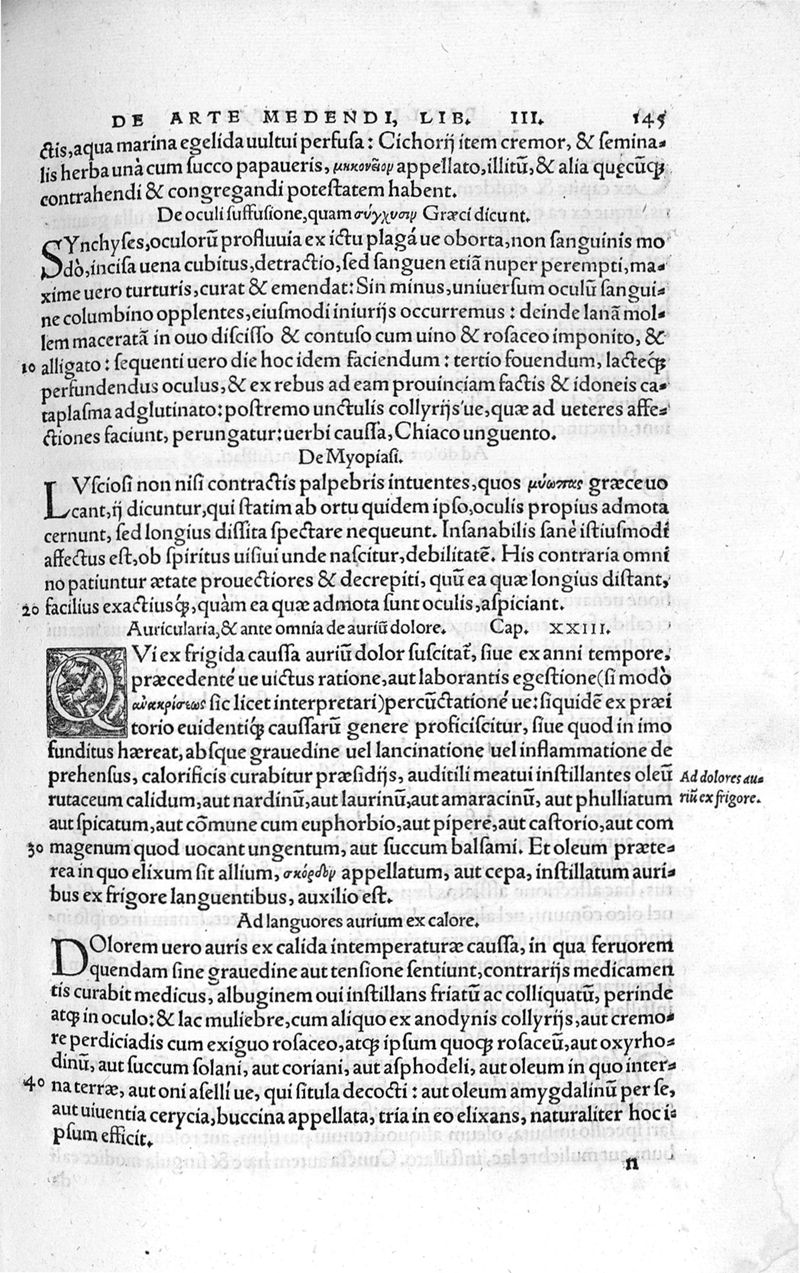 DE ARTE MEDENDI, LIB. III. 145
ctis, aqua marina egelida uultui perfusa: Cichorij item cremor, & semina-
lis herba unà cum succo papaueris, μηκονεῖον appellato, illitũ, & alia quęcũq;
contrahendi & congregandi potestatem habent.
De oculi suffusione, quam σύγχυσιν Græci dicunt.
SYnchyses, oculorũ profluuia ex ictu plagá ue oborta, non sanguinis mo
dò, incisa uena cubitus, detractio, sed sanguen etiã nuper perempti, ma-
xime uero turturis, curat & emendat: Sin minus, uniuersum oculũ sangui-
ne columbino opplentes, eiusmodi iniurijs occurremus: deinde lanã mol-
lem maceratã in ouo discisso & contuso cum uino & rosaceo imponito, &
10 alligato: sequenti uero die hoc idem faciendum: tertio fouendum, lacteq́;
perfundendus oculus, & ex rebus ad eam prouinciam factis & idoneis ca-
taplasma adglutinato: postremo unctulis collyrijs'ue, quæ ad ueteres affe-
ctiones faciunt, perungatur: uerbi caussa, Chiaco unguento.
De Myopiasi.
LVsciosi non nisi contractis palpebris intuentes, quos μύωπας græce uo
cant, ij dicuntur, qui statim ab ortu quidem ipso, oculis propius admota
cernunt, sed longius dissita spectare nequeunt. Insanabilis sanè istiusmodi
affectus est, ob spiritus uisiui unde nascitur, debilitatẽ. His contraria omni
no patiuntur ætate prouectiores & decrepiti, quũ ea quæ longius distant,
20 facilius exactiusq́;, quàm ea quæ admota sunt oculis, aspiciant.
Auricularia, & ante omnia de auriũ dolore. Cap. XXIII.
QVi ex frigida caussa auriũ dolor suscitat̃, siue ex anni tempore,
præcedenté ue uictus ratione, aut laborantis egestione (si modò
ἀνακρίσεως sic licet interpretari) percũctationé ue: siquidẽ ex præi
torio euidentiq́; caussarũ genere proficiscitur, siue quod in imo
funditus hæreat, absque grauedine uel lancinatione uel inflammatione de
prehensus, calorificis curabitur præsidijs, auditili meatui instillantes oleũ
Ad dolores au-
riũ ex frigore.
rutaceum calidum, aut nardinũ, aut laurinũ, aut amaracinũ, aut phulliatum
aut spicatum, aut cõmune cum euphorbio, aut pipere, aut castorio, aut com
30 magenum quod uocant ungentum, aut succum balsami. Et oleum præte-
rea in quo elixum sit allium, σκόρδον appellatum, aut cepa, instillatum auri-
bus ex frigore languentibus, auxilio est.
Ad languores aurium ex calore.
DOlorem uero auris ex calida intemperaturæ caussa, in qua feruorem
quendam sine grauedine aut tensione sentiunt, contrarijs medicamen
tis curabit medicus, albuginem oui instillans friatũ ac colliquatũ, perinde
atq; in oculo: & lac muliebre, cum aliquo ex anodynis collyrijs, aut cremo-
re perdiciadis cum exiguo rosaceo, atq; ipsum quoq; rosaceũ, aut oxyrho-
dinũ, aut succum solani, aut coriani, aut asphodeli, aut oleum in quo inter-
40 na terræ, aut oni aselli ue, qui situla decocti: aut oleum amygdalinũ per se,
aut uiuentia cerycia, buccina appellata, tria in eo elixans, naturaliter hoc i-
psum efficit.
n